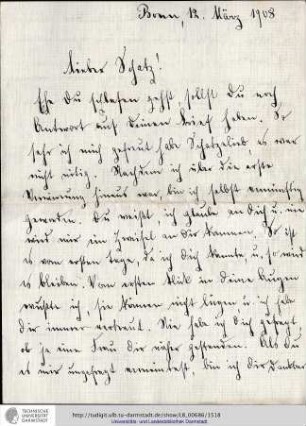 Bonn, 12. März 1908
Lieber Schatz!
Ehe Du schlafen gehst, sollst Du noch
Antwort auf Deinen Brief haben. So
sehr ich mich gefreut habe Schatzelieb es war
nicht nötig. Nachdem ich über die erste
Verwirrung hinaus war, bin ich selbst vernünftig
geworden. Du weißt ich glaube an Dich u. nie
wird mir ein Zweifel an Dir kommen. So ist
es vom ersten Tage, da ich Dich kannte u. so wird
es bleiben. Vom ersten Blick in Deine Augen
wußte ich, sie können nicht lügen u. ich habe
Dir immer vertraut. Nie habe ich Dich gefragt,
ob je eine Frau Dir näher gestanden. Als Du
es mir ungefragt, bin ich Dir dankbar
TECHNISCHE
UNIVERSITÄT
DARMSTADT
http://tudigit.ulb.tu-darmstadt.de/show/LB_00686/1518
Universitäts- und Landesbibliothek Darmstadt